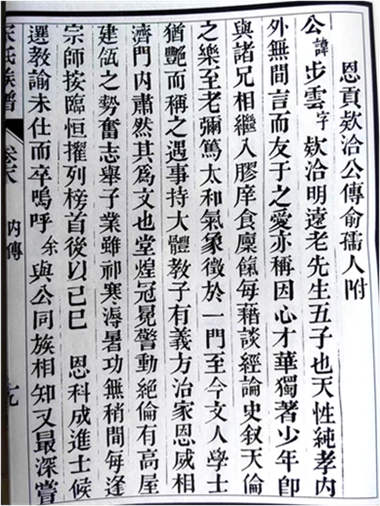 恩貢欸洽公傳俞孺人附
公諱步雲字欸洽明遠老先生五子也天性純孝內
外無間言而友于之愛亦稱因心才華獨著少年卽
與諸兄相繼入膠庠食廩餼每藉談經論史叙天倫
之樂至老彌篤太和氣象徵於一門至今文人學士
猶艷而稱之遇事持大體教子有義方治家恩威相
濟門內肅然其爲文也堂煌冠冕警動絕倫有高屋
建瓴之勢奮志舉子業雖祁寒溽暑功無稍間每逢
宗師按臨恒擢列榜首後以己巳 恩科成進士候
選教諭未仕而卒嗚呼余與公同族相知又最深嘗
氏族譜 卷末 內傳